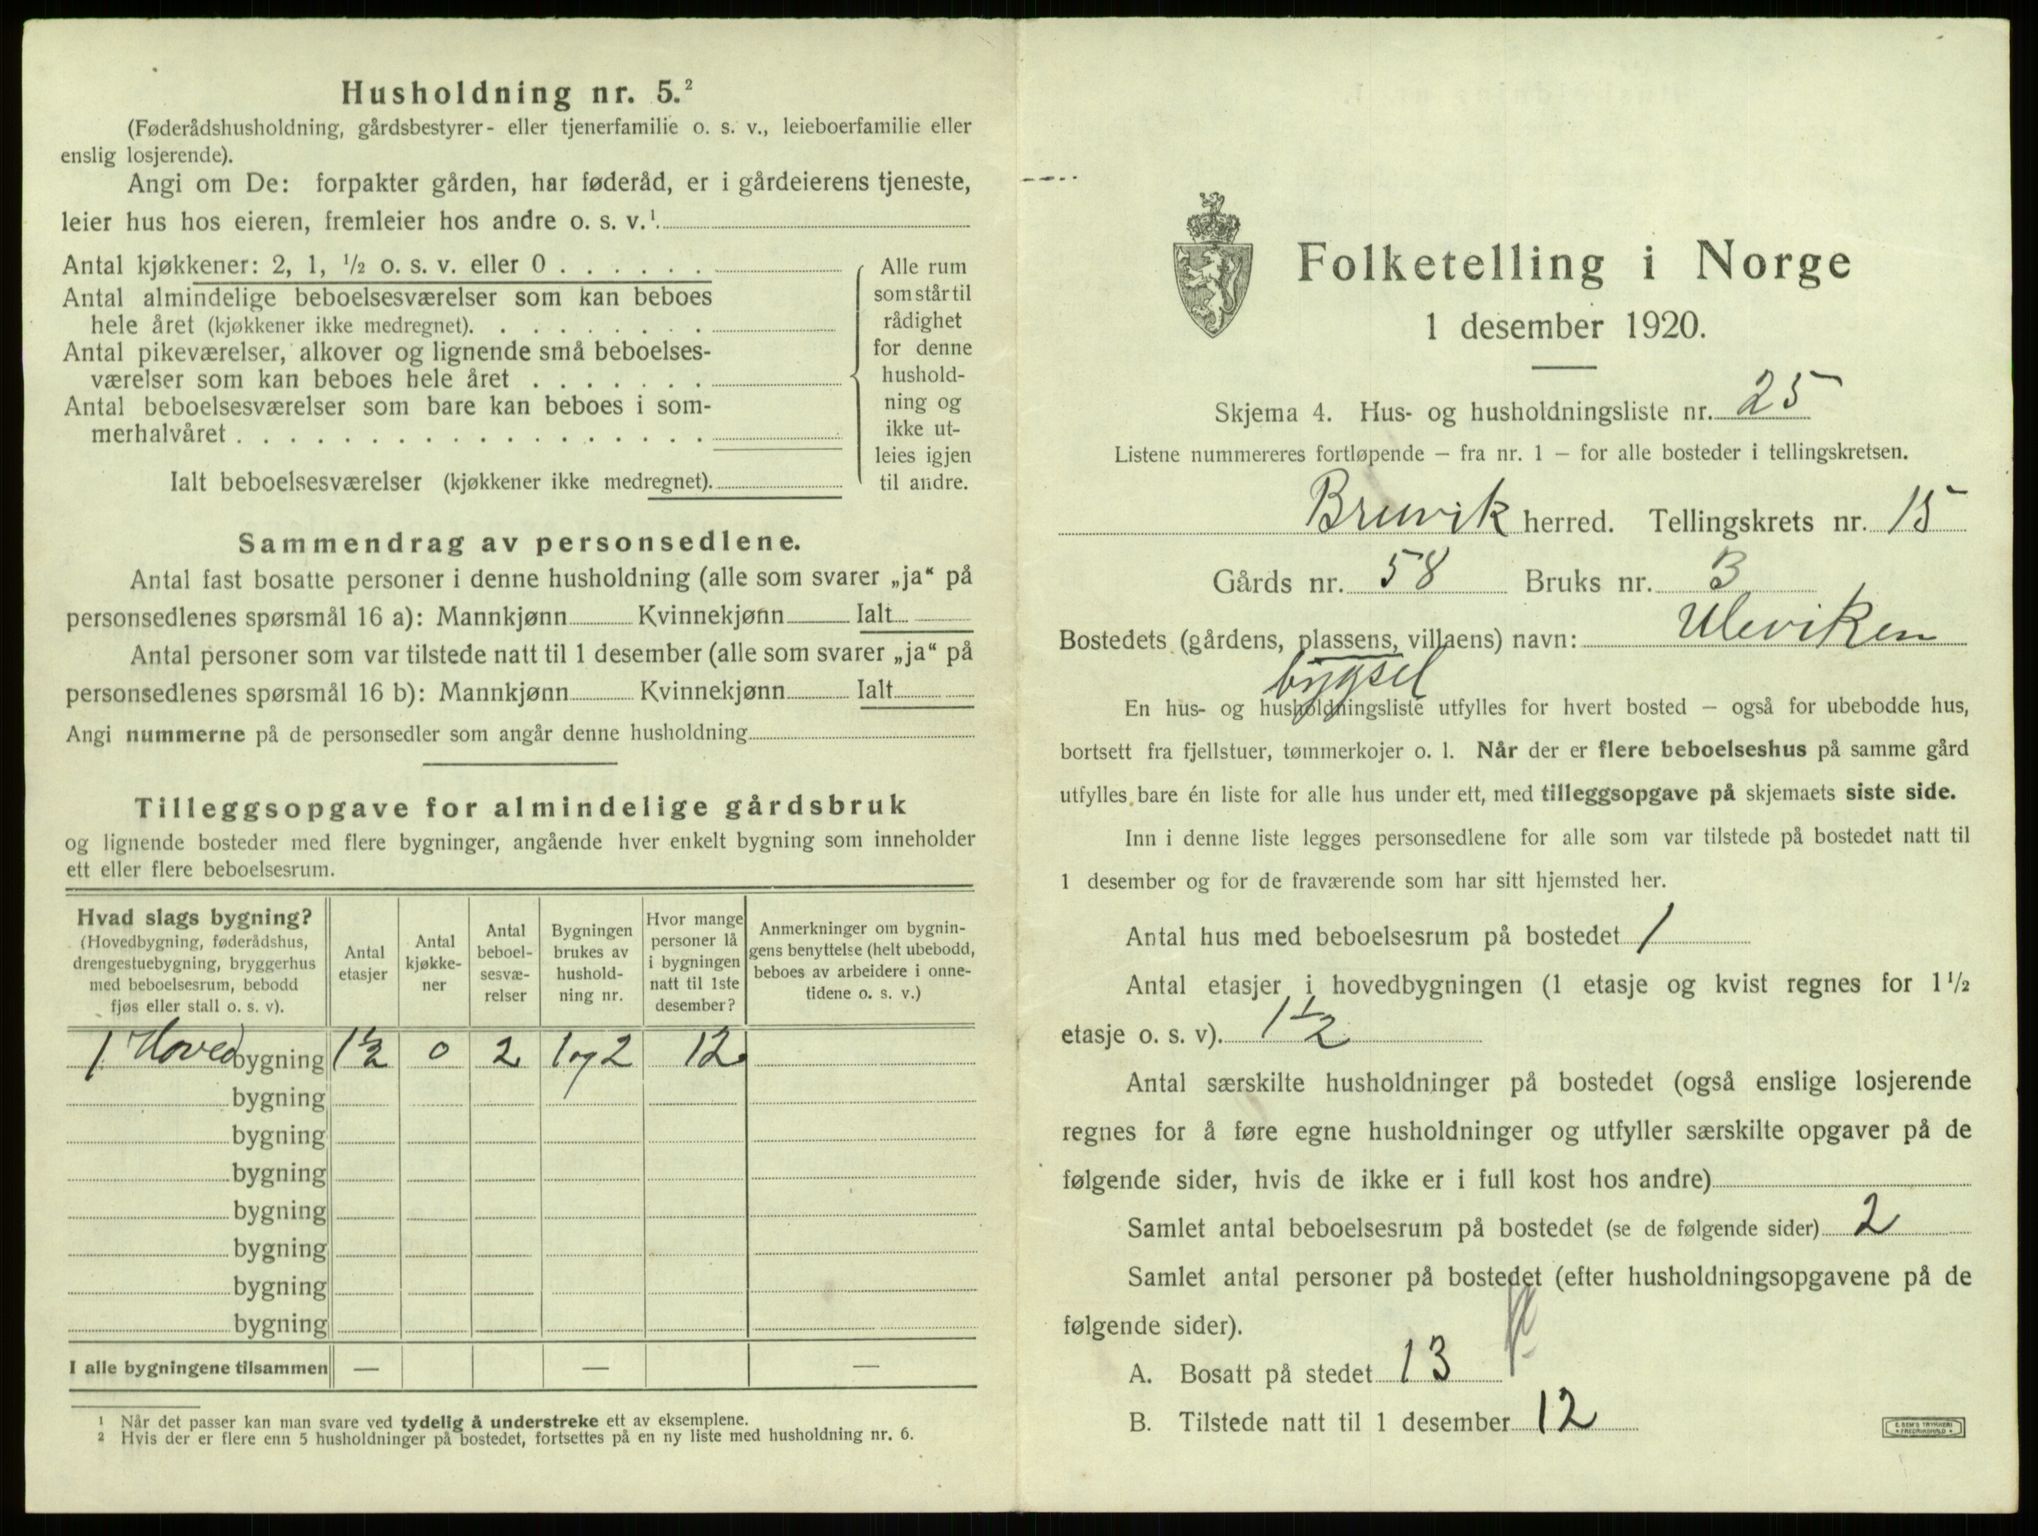 Husholdning nr. 5.²
(Føderådshusholdning, gårdsbestyrer- eller tjenerfamilie o. s. v., leieboerfamilie eller
enslig losjerende).
Angi om De: forpakter gården, har føderåd, er i gårdeierens tjeneste,
leier hus hos eieren, fremleier hos andre o. s. v.¹
Antal kjøkkener: 2, 1, ½ o. s. v. eller 0 . . . . . .
Antal almindelige beboelsesværelser som kan beboes
hele året (kjøkkener ikke medregnet). . . . . . . . .
Antal pikeværelser, alkover og lignende små beboelses-
værelser som kan beboes hele året . . . . . . .
Antal beboelsesværelser som bare kan beboes i som-
merhalvåret . . . . . . . . . . . . . . . . . .
Ialt beboelsesværelser (kjøkkener ikke medregnet).
Alle rum
som står til
rådighet
for denne
hushold-
ning og
ikke ut-
leies igjen
til andre.
Sammendrag av personsedlene.
Antal fast bosatte personer i denne husholdning (alle som svarer „ja“ på
personsedlenes spørsmål 16 a): Mannkjønn Kvinnekjønn Ialt
Antal personer som var tilstede natt til 1 desember (alle som svarer „ja“ på
personsedlenes spørsmål 16 b): Mannkjønn Kvinnekjønn Ialt
Angi nummerne på de personsedler som angår denne husholdning
Tilleggsopgave for almindelige gårdsbruk
og lignende bosteder med flere bygninger, angående hver enkelt bygning som inneholder
ett eller flere beboelsesrum.
Hvad slags bygning?
(Hovedbygning, føderådshus,
drengestuebygning, bryggerhus
med beboelsesrum, bebodd
fjøs eller stall o. s. v).
Antal
etasjer
Antal
kjøkke-
ner
Antal
beboel-
sesvæ-
relser
Bygningen
brukes av
hushold-
ning nr.
Hvor mange
personer lå
i bygningen
natt til 1ste
desember?
Anmerkninger om bygnin-
gens benyttelse (helt ubebodd,
beboes av arbeidere i onne-
tidene o. s. v.)
1 Hovedbygning 1½ 0 2 1 og 2 12
bygning
bygning
bygning
bygning
bygning
bygning
bygning
I alle bygningene tilsammen — — —
¹ Når det passer kan man svare ved tydelig å understreke ett av eksemplene.
² Hvis der er flere enn 5 husholdninger på bostedet, fortsettes på en ny liste med husholdning nr. 6.
Folketelling i Norge
1 desember 1920.
Skjema 4. Hus- og husholdningsliste nr. 25
Listene nummereres fortløpende – fra nr. 1 – for alle bosteder i tellingskretsen.
Bruvik herred. Tellingskrets nr. 15
Gårds nr. 58 Bruks nr. 3
Bostedets (gårdens, plassens, villaens) navn: Uleviken
bygsel
En hus- og husholdningsliste utfylles for hvert bosted – også for ubebodde hus,
bortsett fra fjellstuer, tømmerkojer o. l. Når der er flere beboelseshus på samme gård
utfylles bare én liste for alle hus under ett, med tilleggsopgave på skjemaets siste side.
Inn i denne liste legges personsedlene for alle som var tilstede på bostedet natt til
1 desember og for de fraværende som har sitt hjemsted her.
Antal hus med beboelsesrum på bostedet 1
Antal etasjer i hovedbygningen (1 etasje og kvist regnes for 1½
etasje o. s. v). 1½
Antal særskilte husholdninger på bostedet (også enslige losjerende
regnes for å føre egne husholdninger og utfyller særskilte opgaver på de
følgende sider, hvis de ikke er i full kost hos andre)
Samlet antal beboelsesrum på bostedet (se de følgende sider) 2
Samlet antal personer på bostedet (efter husholdningsopgavene på de
følgende sider).
A. Bosatt på stedet 13
B. Tilstede natt til 1 desember 12
E. SEM'S TRYKKERI
FREDRIKSHALD